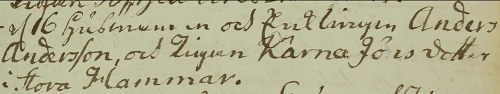 d 16 Husman en och Enklingen Anders
Andersson, och Pigan Karna Jönsdotter
i stora Hammar.